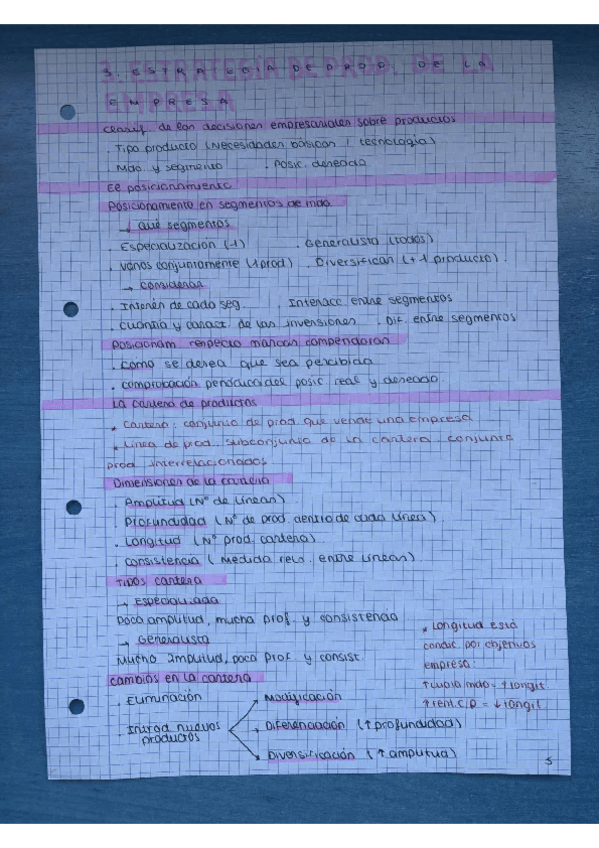 3. ESTRATEGÍA DE PROD. DE LA
EMPRESA
Clasif. de las decisiones empresariales sobre productos
. Tipo producto (Necesidades básicas / tecnología)
. Mdo y segmento . Posic. deseada
El posicionamiento
Posicionamiento en segmentos de mdo
→ Qué segmentos
. Especialización (1) . Generalista (todos)
. Varios conjuntamente (1prod) . Diversifican (+1 producto).
→ Considerar
. Interés de cada seg. . Interacc. entre segmentos
. Cuantía y caract. de las inversiones . Dif. entre segmentos
Posicionam respecto marcas competidoras
. Como se desea que sea percibida
. Comprobación periódica del posic real y deseado
La cartera de productos
* Cartera: conjunto de prod. que vende una empresa
* Línea de prod. subconjunto de la cartera. conjunto
prod. interrelacionados
Dimensiones de la cartera
. Amplitud (Nº de líneas)
. Profundidad (Nº de prod. dentro de cada línea)
. Longitud (Nº prod. cartera)
. Consistencia (Medida relo. entre líneas)
Tipos cartera
→ Especializada
Poca amplitud, mucha prof. y consistencia
→ Generalista
Mucha amplitud, poca prof. y consist.
* Longitud está
condic. por objetivos
empresa:
↑ cuota mdo = ↑ longit.
↑ rent. C.P = ↓ longit.
Cambios en la cartera
. Eliminación
. Introd. nuevos
productos
Modificación
Diferenciación (↑ profundidad)
Diversificación (↑ amplitud)
5